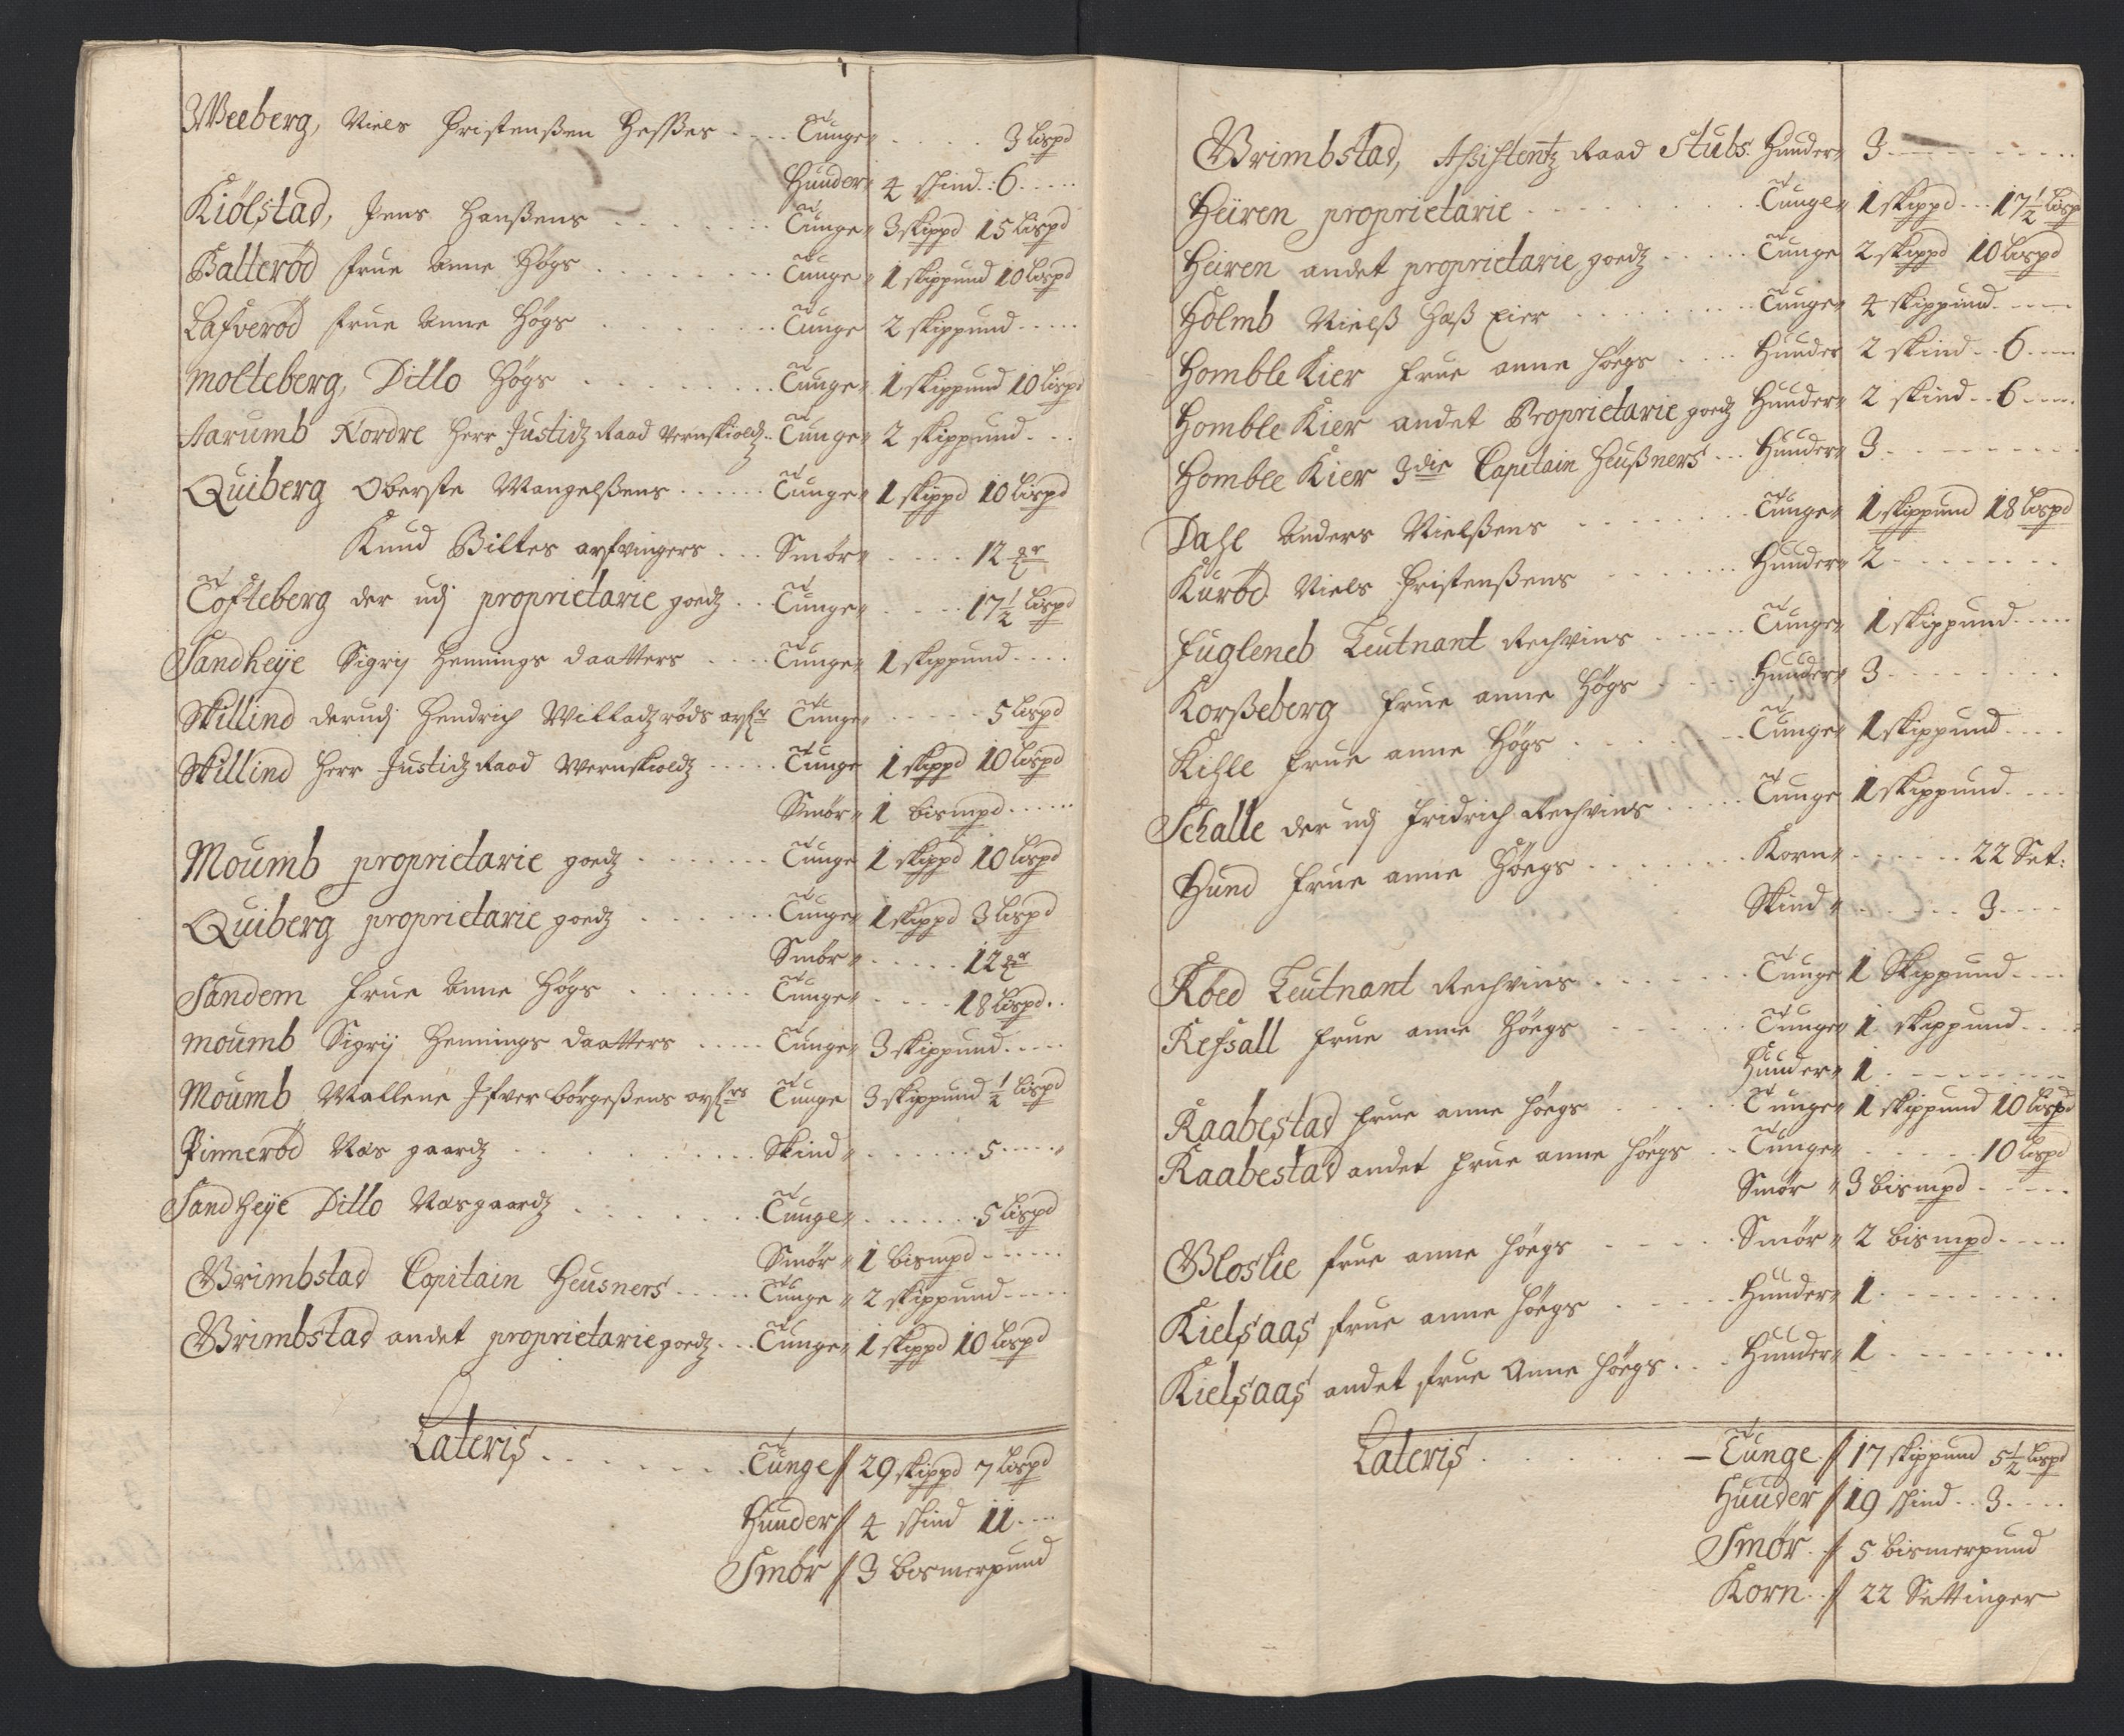 Weeberg, Niels Christenßen Hesses .... Tunge " ..... 3 Lispd
Hunder " 4 skind : 6 .....
Kiölstad, Jens Hanßens ....... Tunge " 3 skippd 15 Lispd
Balterød frue Anne Høgs ....... Tunge " 1 skippund 10 Lispd
Lafverød frue Anne Høgs ....... Tunge 2 skippund .....
Molteberg, Ditto Høgs ....... Tunge " 1 skippund 10 Lispd
Aarumb Nordre Herr Justidz Raad Wernskioldz .. Tunge " 2 skippund ...
Quiberg Oberste Mangelßens ...... Tunge " 1 skippd 10 Lispd
Knud Biltes arfvingers ... Smør " .... 12 mr
Tofteberg der udj proprietarie goedz .. Tunge " .... 17½ Lispd
Sandheije Sigrij Hennings daatters .... Tunge " 1 skippund ....
Skillind derudj Hendrich Willadzrøds arfr Tunge " ..... 5 Lispd
Skillind Herr Justidz Raad Wernskioldz ..... Tunge 1 skippd 10 Lispd
Smør " 1 bismpd ......
Moumb proprietarie goedz ....... Tunge 1 skippd 10 Lispd
Quiberg proprietarie goedz ...... Tunge " 1 skippd 3 Lispd
Smør " ..... 12 mr
Sandem frue Anne Høgs ...... Tunge " .... 18 Lispd ..
Moumb Sigrij Hennings daatters ..... Tunge " 3 skippund .....
Moumb Mallene Ifver børgeßens arfrs Tunge 3 skippund ½ Lispd
Pinnerød Næs gaardz ......... Skind " ...... 5 .....
Sandheije Ditto Næsgaardz ....... Tunge " ...... 5 Lispd
Smør " 1 bismpd ......
Grimbstad Capitain Heusners ..... Tunge " 2 skippund .....
Grimbstad andet proprietarie goedz ... Tunge " 1 skippd 10 Lispd
Lateris ....... Tunge // 29 skippd 7 Lispd
Hunder // 4 skind 11 ....
Smør // 3 Bismerpund
Grimbstad, Assistentz Raad Stubs. Hunder " 3 .........
Heüren proprietarie ........ Tunge " 1 skippd ... 17½ Lisp
Heüren andet proprietarie goedz ..... Tunge 2 skippd 10 Lispd
Holmb Nielß Haß Eier ........ Tunge " 4 skippund .....
Homble Kier frue anne Høegs .... Hunder 2 skind .. 6 ....
Homble Kier andet Proprietarie goedz Hunder " 2 skind .. 6 ....
Homble Kier 3die Capitain Heußners ... Hunder " 3 ........
Dahl Anders Nielßens ....... Tunge " 1 skippund 18 Lispd
Kurød Niels Christenßens ....... Hunder " 2 ........
Fugleneb Leutnant Rechvins ...... Tunge " 1 skippund .....
Korßeberg frue anne Høgs .... Hunder " 3 ........
Kihle frue anne Høgs ....... Tunge " 1 skippund ....
Schalle der udj Fridrich Rechvins ..... Tunge 1 skippund ....
Hund frue anne Høegs ....... Korn " ...... 22 Set:
Skind " ...... 3 ....
Røed Leutnant Rechvins ....... Tunge 1 Skippund ....
Refsall frue anne Høegs ...... Tunge " 1 skippund ....
Hunder " 1 ........
Raabestad frue anne Høegs ..... Tunge " 1 skippund 10 Lispd
Raabestad andet frue anne Høegs .. Tunge " ...... 10 Lispd
Smør " 3 bismpd .....
Gloslie frue anne Høegs ..... Smør " 2 bismpd ....
Kielsaas frue anne Høegs ..... Hunder " 1 ........
Kielsaas andet frue Anne Høegs ... Hunder " 1 ........
Lateris ...... Tunge // 17 skippund 5½ Lispd
Hunder // 19 skind .. 3 ....
Smør // 5 bismerpund
Korn // 22 Settinger